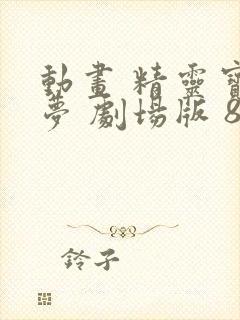 動畫 精靈寶
夢 劇場版 8
鈴子